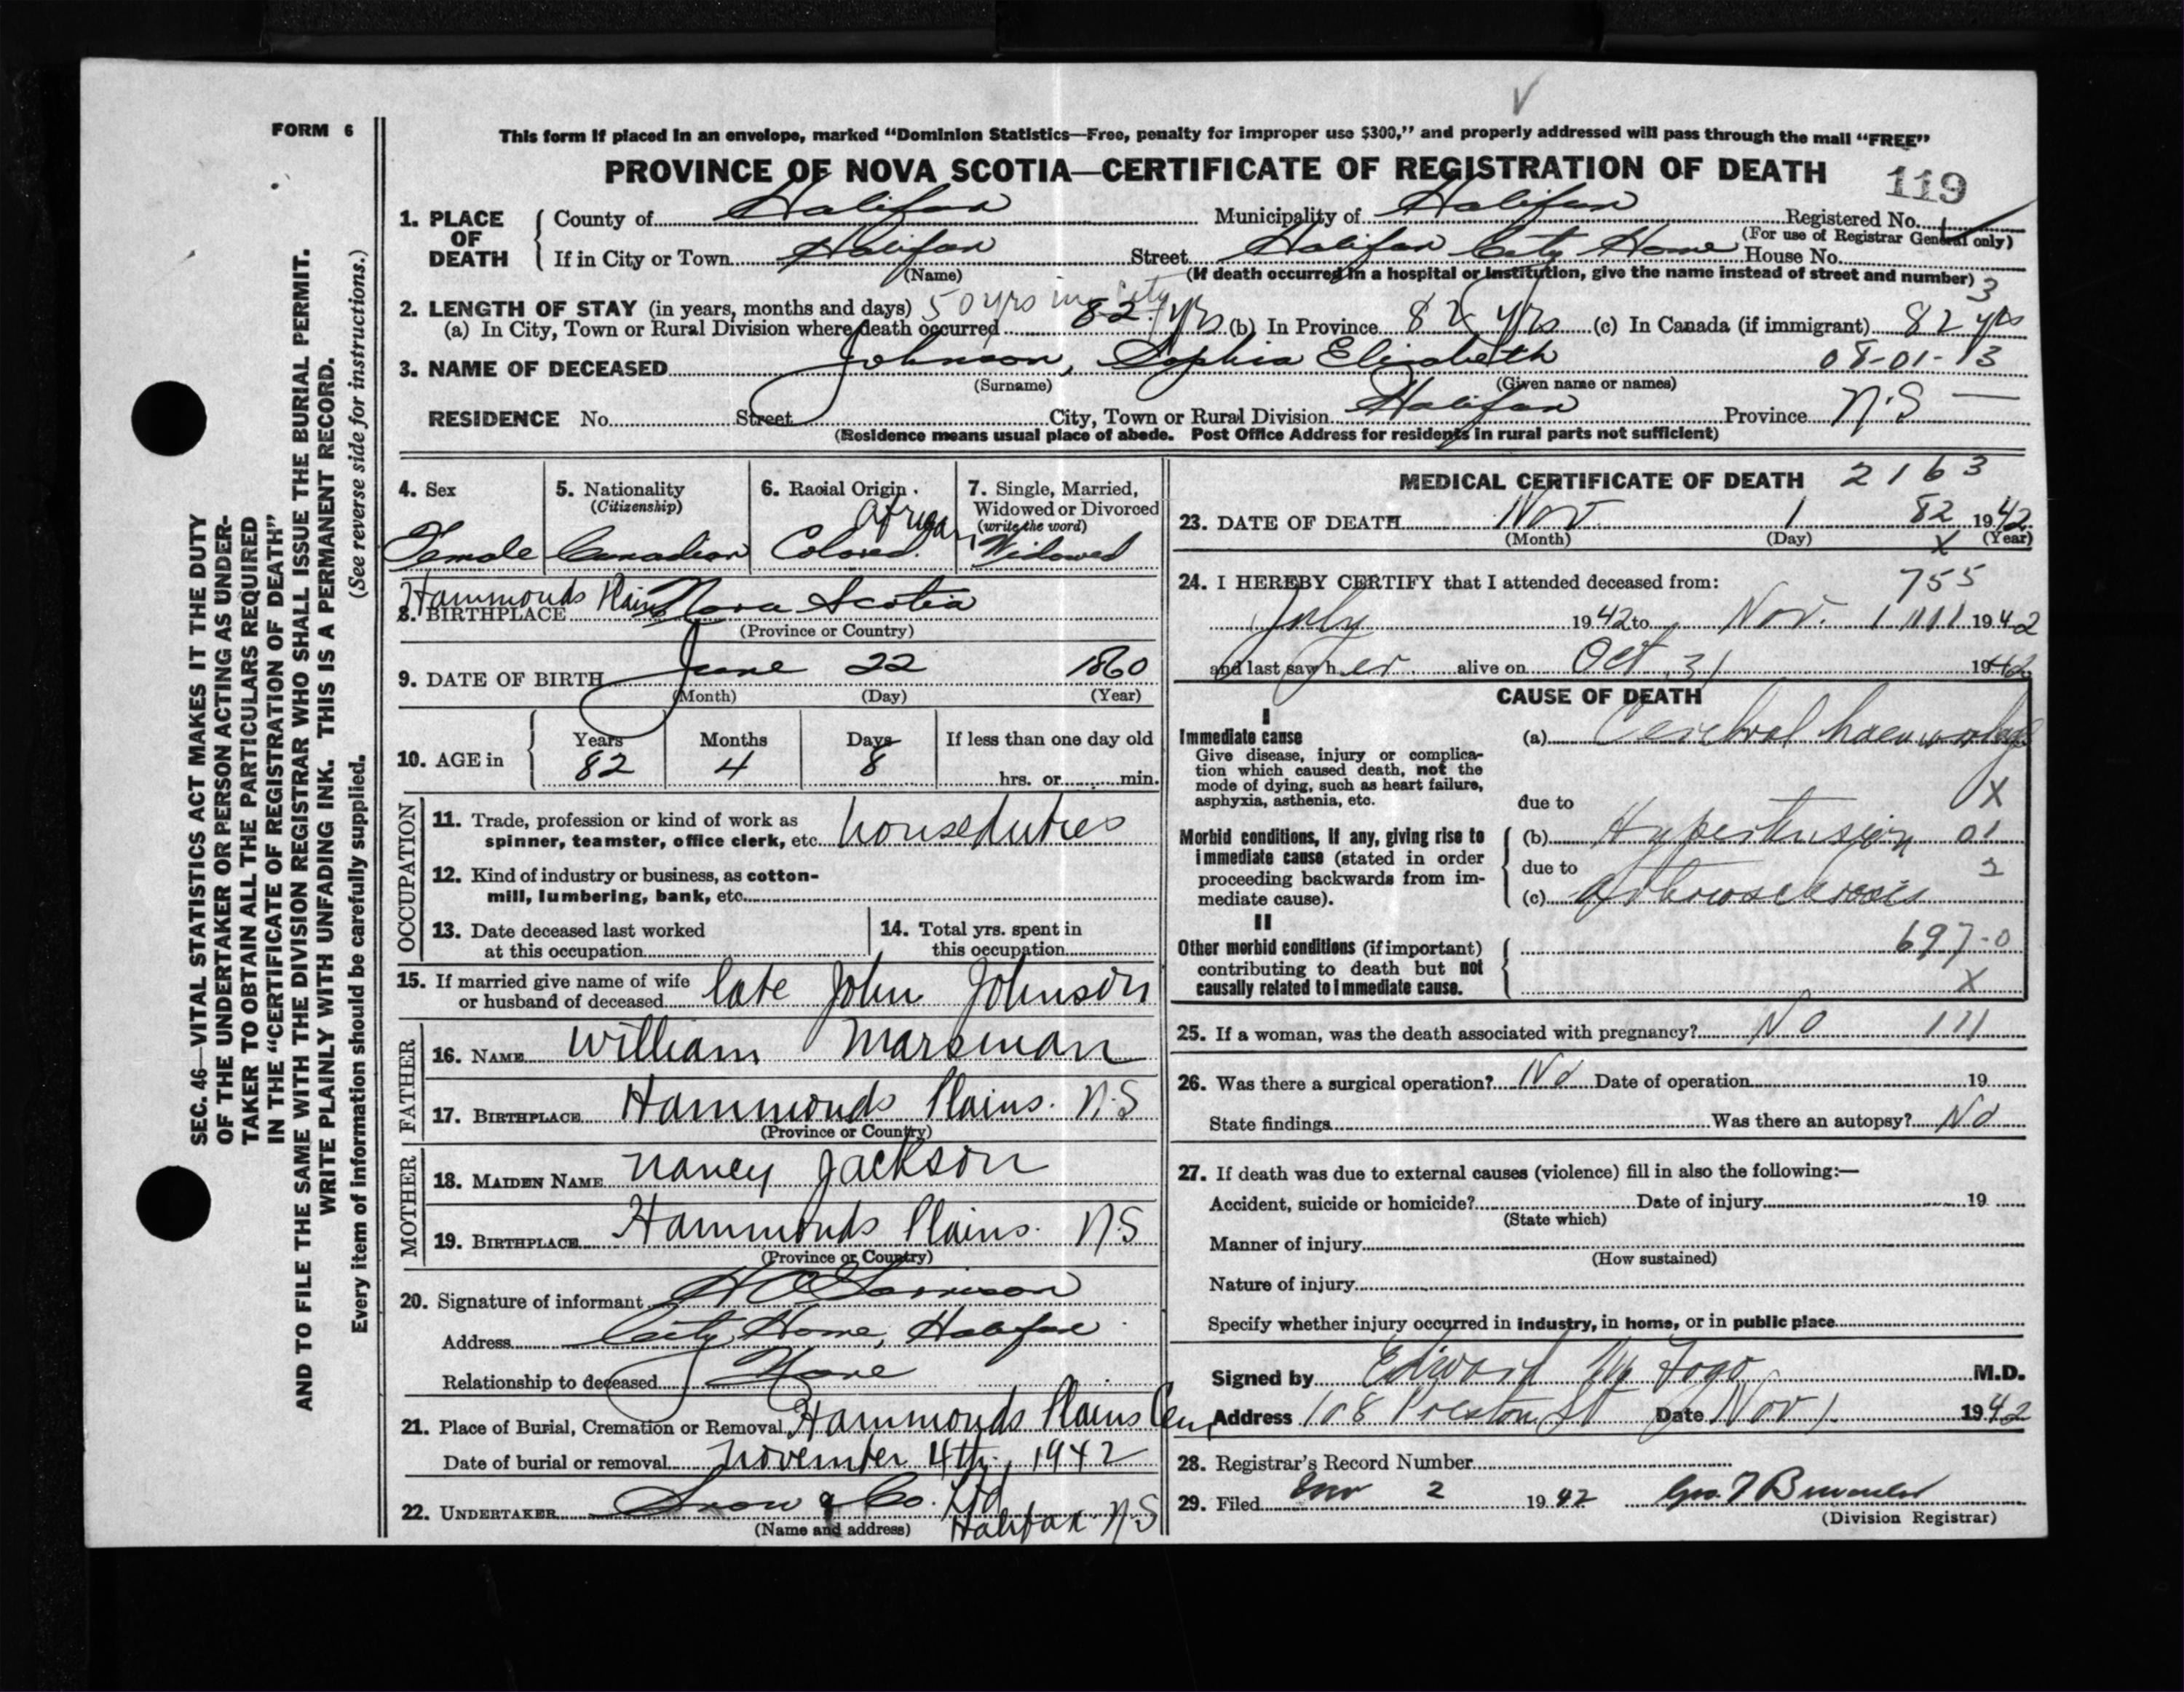 V
FORM 6
This form if placed in an envelope, marked "Dominion Statistics—Free, penalty for improper use $300," and properly addressed will pass through the mail "FREE"
PROVINCE OF NOVA SCOTIA—CERTIFICATE OF REGISTRATION OF DEATH
119
1. PLACE OF DEATH
County of Halifax Municipality of Halifax Registered No.
(For use of Registrar General only)
If in City or Town Halifax Street Halifax City Home House No.
(Name) (If death occurred in a hospital or institution, give the name instead of street and number) 3
2. LENGTH OF STAY (in years, months and days) 50 yrs in City
(a) In City, Town or Rural Division where death occurred 82 yrs (b) In Province 82 yrs (c) In Canada (if immigrant) 82 yrs
3. NAME OF DECEASED Johnson, Sophia Elizabeth 08-01-13
(Surname) (Given name or names)
RESIDENCE No. Street City, Town or Rural Division Halifax Province N.S
(Residence means usual place of abode. Post Office Address for residents in rural parts not sufficient)
4. Sex
Female
5. Nationality
(Citizenship)
Canadian
6. Racial Origin
African
Colored.
7. Single, Married,
Widowed or Divorced
(write the word)
Widowed
Hammonds Plains
8. BIRTHPLACE Nova Scotia
(Province or Country)
9. DATE OF BIRTH June 22 1860
(Month) (Day) (Year)
10. AGE in
Years Months Days If less than one day old
82 4 8 hrs. or min.
OCCUPATION
11. Trade, profession or kind of work as
spinner, teamster, office clerk, etc. houseduties
12. Kind of industry or business, as cotton-
mill, lumbering, bank, etc.
13. Date deceased last worked
at this occupation
14. Total yrs. spent in
this occupation
15. If married give name of wife
or husband of deceased late John Johnson
FATHER
16. NAME William Marsman
17. BIRTHPLACE Hammonds Plains. N.S
(Province or Country)
MOTHER
18. MAIDEN NAME Nancy Jackson
19. BIRTHPLACE Hammonds Plains. N.S
(Province or Country)
20. Signature of informant
Address City Home, Halifax
Relationship to deceased None
21. Place of Burial, Cremation or Removal Hammonds Plains Cem
Date of burial or removal November 4th, 1942
22. UNDERTAKER Snow & Co. Ltd
(Name and address) Halifax N.S
MEDICAL CERTIFICATE OF DEATH 2163
23. DATE OF DEATH Nov 1 82 1942
(Month) (Day) X (Year)
24. I HEREBY CERTIFY that I attended deceased from:
755
July 1942 to Nov. 1 1942
and last saw her alive on Oct 31 1942
CAUSE OF DEATH
I
Immediate cause
Give disease, injury or complica-
tion which caused death, not the
mode of dying, such as heart failure,
asphyxia, asthenia, etc.
(a) Cerebral haemorrhage
X
due to
Morbid conditions, if any, giving rise to
immediate cause (stated in order
proceeding backwards from im-
mediate cause).
(b) Hypertension 01
due to 2
(c)
II
Other morbid conditions (if important)
contributing to death but not
causally related to immediate cause.
697-0
X
25. If a woman, was the death associated with pregnancy? No 111
26. Was there a surgical operation? No Date of operation 19
State findings Was there an autopsy? No
27. If death was due to external causes (violence) fill in also the following:—
Accident, suicide or homicide? Date of injury 19
(State which)
Manner of injury
(How sustained)
Nature of injury
Specify whether injury occurred in industry, in home, or in public place
Signed by Edward M Fogo M.D.
Address 108 Preston St Date Nov 1. 1942
28. Registrar's Record Number
29. Filed Nov 2 1942
(Division Registrar)
SEC. 46—VITAL STATISTICS ACT MAKES IT THE DUTY
OF THE UNDERTAKER OR PERSON ACTING AS UNDER-
TAKER TO OBTAIN ALL THE PARTICULARS REQUIRED
IN THE "CERTIFICATE OF REGISTRATION OF DEATH"
AND TO FILE THE SAME WITH THE DIVISION REGISTRAR WHO SHALL ISSUE THE BURIAL PERMIT.
WRITE PLAINLY WITH UNFADING INK. THIS IS A PERMANENT RECORD.
Every item of information should be carefully supplied. (See reverse side for instructions.)